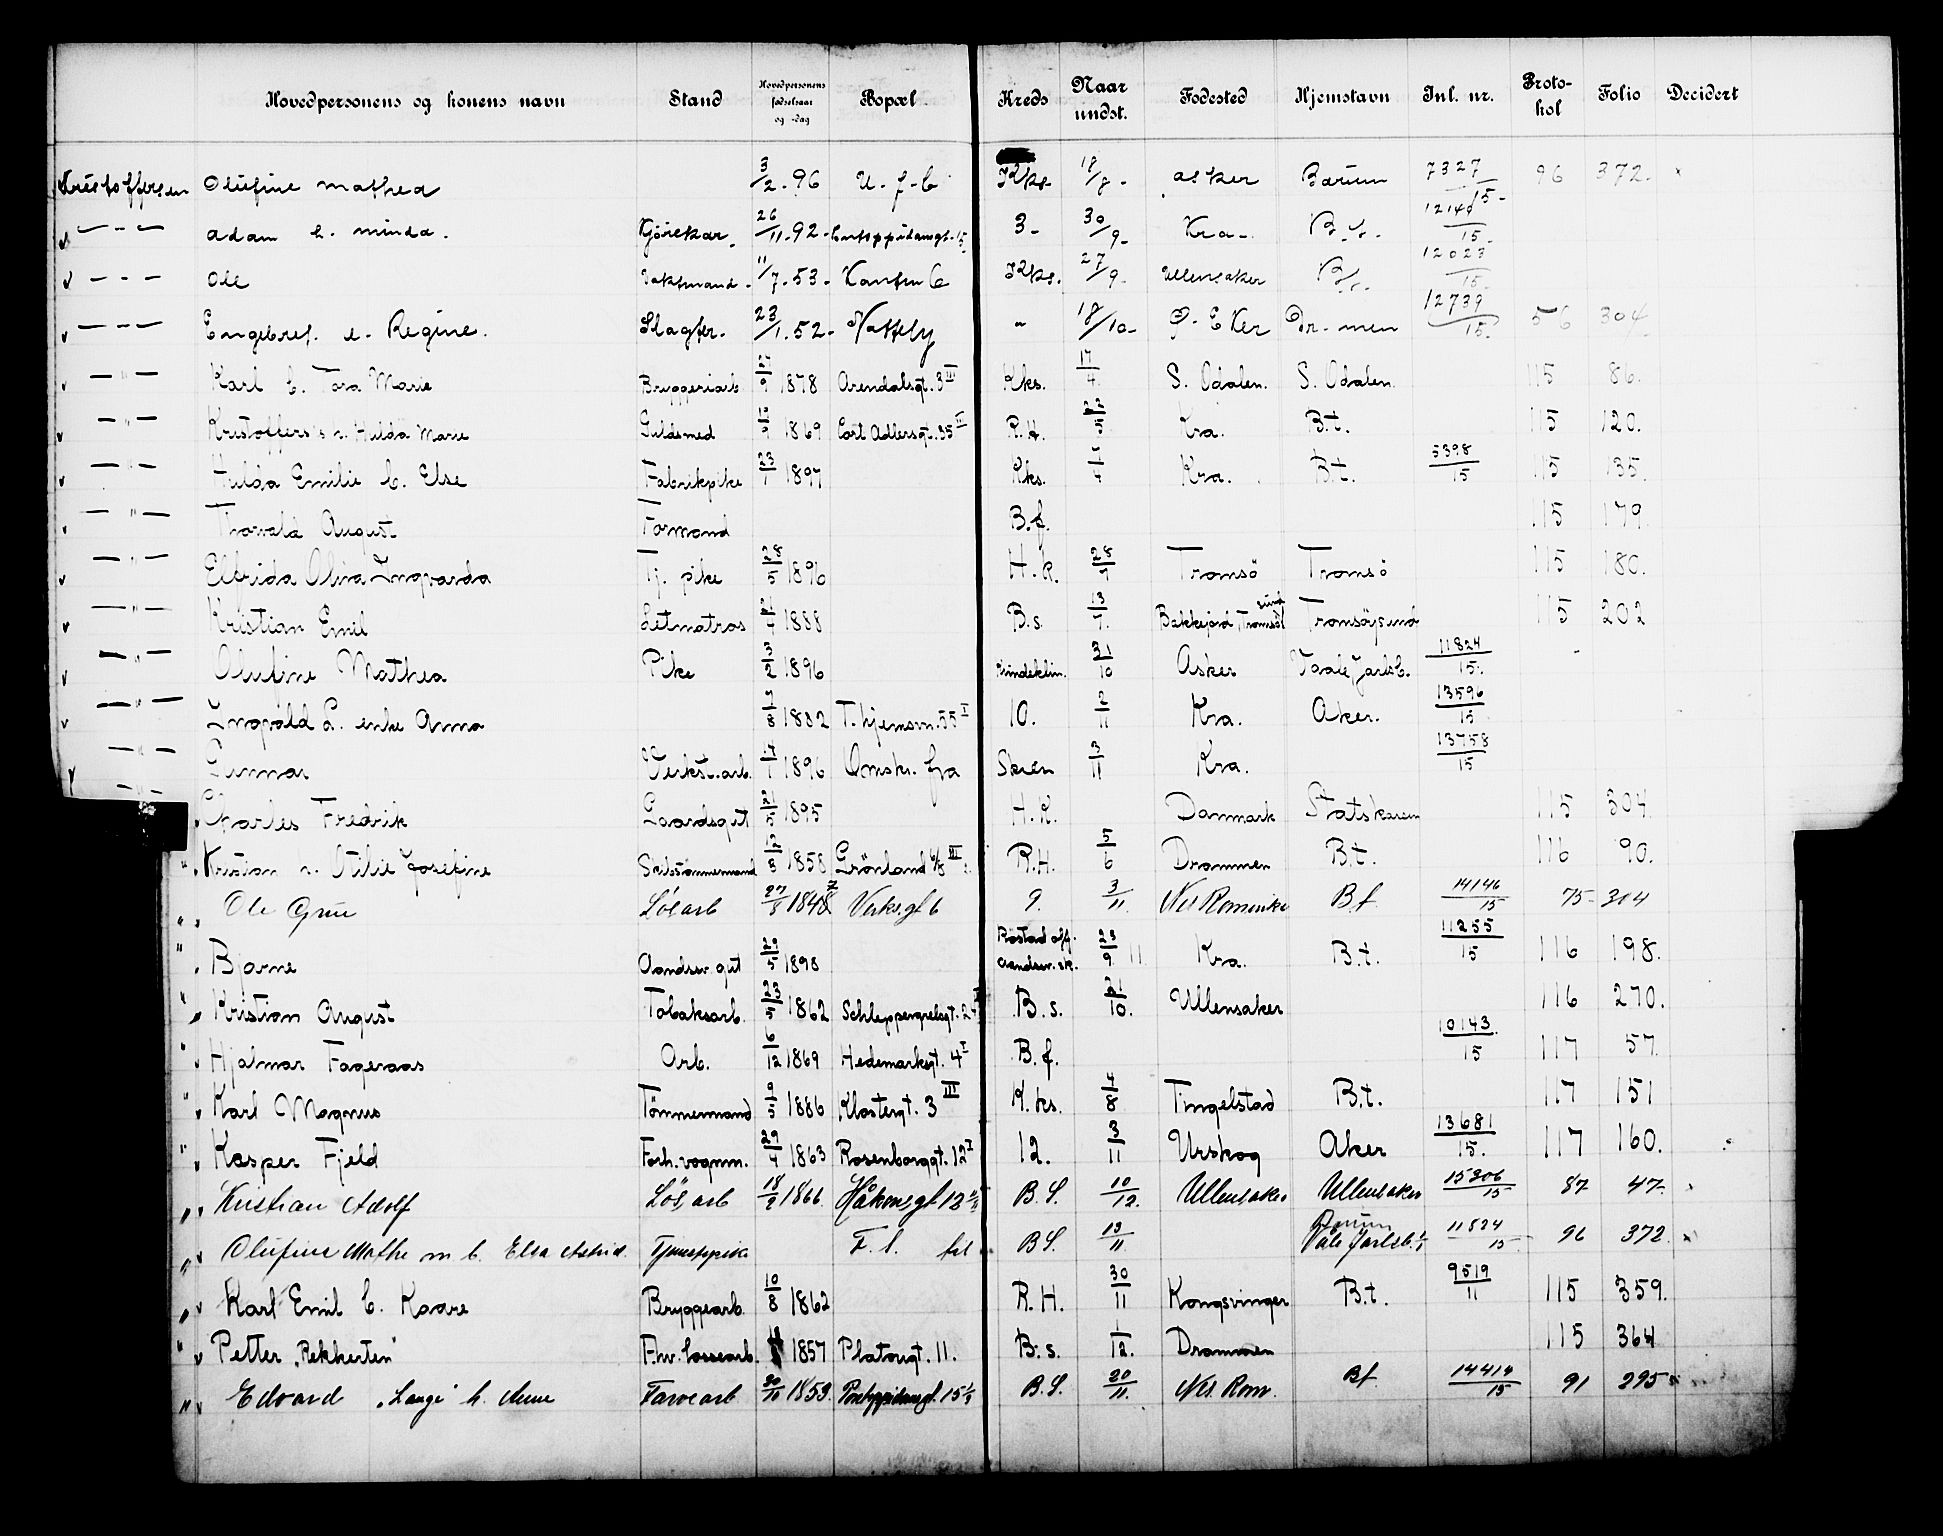 Hovedpersonens og konens navn Stand Hovedpersonens fødselsaar og -dag Bopæl Kreds Naar undst. Fodested Hjemstavn Inl. nr. Protokol Folio Decidert
Kristoffersen Olufine Mathea 3/2 - 96 U. f. b Kks. 18/8 - Asker Bærum 7327/15 - 96 372.
— " — Adam h. Minda. 26/11 - 92 - 3 - 30/9 - Kra -
— " — Ole Vaktmand - 11/7 - 53 - Kks. 27/9 - Ullensaker 12023/15
— " — Engebret. e. Regine. Slagter. 23/1. 52 - Nattely " 18/10 - Ø. Eker Dr-men 12739/15. 56 304
— " — Karl h. Tora Marie Bryggeriarb 9 1878 Arendalsgt. 3 III Kks. 17/4 S. Odalen. S. Odalen. 115 86.
— " — Kristoffers s h. Hilda Marie Guldsmed 1869 Cort Adlersgt. 35 II R.H. 22/5 Kra. B.t. 115 120.
— " — Hilda Emilie b. Else Fabrikpike 23 1897 Kks. Kra. B.t. 5398/15 115 135.
— " — Thorvald August Formand B.f. 115 179.
— " — Elfrida Olina Ingvarda Tj. pike 28/5 1896 H.k. 28 Tromsö Tromsö 115 180.
— " — Kristian Emil Letmatros 1888 B.s. 13/7. Bakkejord, Tromsösund Tromsöysund 115 202
— " — Olufine Mathea Pike 3/2 1896 Kvindeklin. 31/10 Asker Vaale, Jarlsb. 11824/15.
— " — Ingvald L. enke Anna 7/8 1882 T. hjemsvn. 55 I 10. 2/11 Kra. Aker. 13596/15
— " — Gunnar Verkst. arb. 1896 Omstr. fra Skien 3/11 Kra. 13758/15
— " — Charles Fredrik Gaardsgut 21/5 1895 H.K. Danmark Statskaren 115 304
" Kristian h. Otilie Josefine Skibstömmermand 12/8 1858 Grönland 6/8 III R.H. 5/6 Drammen B.t. 116 90.
" Ole Grue Lösarb 1848 Verksgt 6 9. 3/11. Nes Romerike B.f. 14146/15 75 - 304
" Bjarne Aandsv. gut 29/5 1898 Röstad off. aandsv. sk. 23/9 11 Kra. B.t. 11255/15 116 198.
" Kristian August Tobaksarb. 23/5 1862 Schleppegrelsgt. 24 B.s. 21/10. Ullensaker 116 270.
" Hjalmar Fageraas Arb. 6/12 1869 Hedemarksgt. 4 I B.f. 10143/15 117 57
" Karl Magnus Tömmermand 9/5 1886 Klostergt. 3 III K.ks. 4/8 Tingelstad B.t. 117 151
" Kasper Fjeld Forh. vognm. 29/4 1863 Rosenborggt. 12 I 12. 3/11 Urskog Aker 13681/15. 117 160.
" Kristian Adolf Lös arb 18/2 1866 Håkonsgt 12 B.S. 10/12. Ullensaker Ullensaker 15306/15 87 47.
" Olufine Mathe m b. Elsa Astrid. Tjenestpike F. l. B.S. 13/11. Bærum Våle Jarlsb. 11824/15 96 372.
" Karl Emil b. Kaare Bryggearb. 10/8 1862 R.H. 30/11 Kongsvinger B.t. 9519/11 115 359.
" Petter "Rekkerten" F.hv. lossearb. 1857 Platougt. 11. B.s. 1/12. Drammen 115 364
" Edvard "Lange" h. Anne Farvearb 1859. Pontoppidansgt. 15 B.S. 20/11. Nes Rom. Bf. 14414/15 91 295